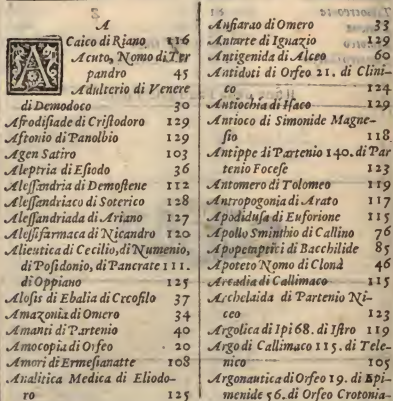 A
A
Caico di Riano 116
Acuto, Nomo di Ter
pandro 45
Adulterio di Venere
di Demodoco 30
Afrodisiade di Cristodoro 129
Aftonio di Panolbio 129
Agen Satiro 103
Aleptria di Esiodo 36
Alessandria di Demostene 112
Alessandriaco di Soterico 128
Alessandriada di Ariano 127
Alessifarmaca di Nicandro 120
Alieutica di Cecilio, di Numenio,
di Posidonio, di Pancrate 111.
di Oppiano 125
Alosis di Ebalia di Creofilo 37
Amazonia di Omero 34
Amanti di Partenio 40
Amocopia di Orfeo 20
Amori di Ermesianatte 108
Analitica Medica di Eliodo-
ro 125
Anfiarao di Omero 33
Antarte di Ignazio 129
Antigenida di Alceo 60
Antidoti di Orfeo 21. di Clini-
co 124
Antiochia di Isaco 129
Antioco di Simonide Magne-
sio 118
Antippe di Partenio 140. di Par
tenio Focese 123
Antomero di Tolomeo 119
Antropogonia di Arato 117
Apodidusa di Euforione 115
Apollo Sminthio di Callino 76
Apopemptici di Bacchilide 85
Apoteto Nomo di Clonà 46
Arcadia di Callimaco 115
Archelaida di Partenio Ni-
ceo 123
Argolica di Ipi 68. di Istro 119
Argo di Callimaco 115. di Tele-
nico 105
Argonautica di Orfeo 19. di Epi-
menide 56. di Orfeo Crotonia-